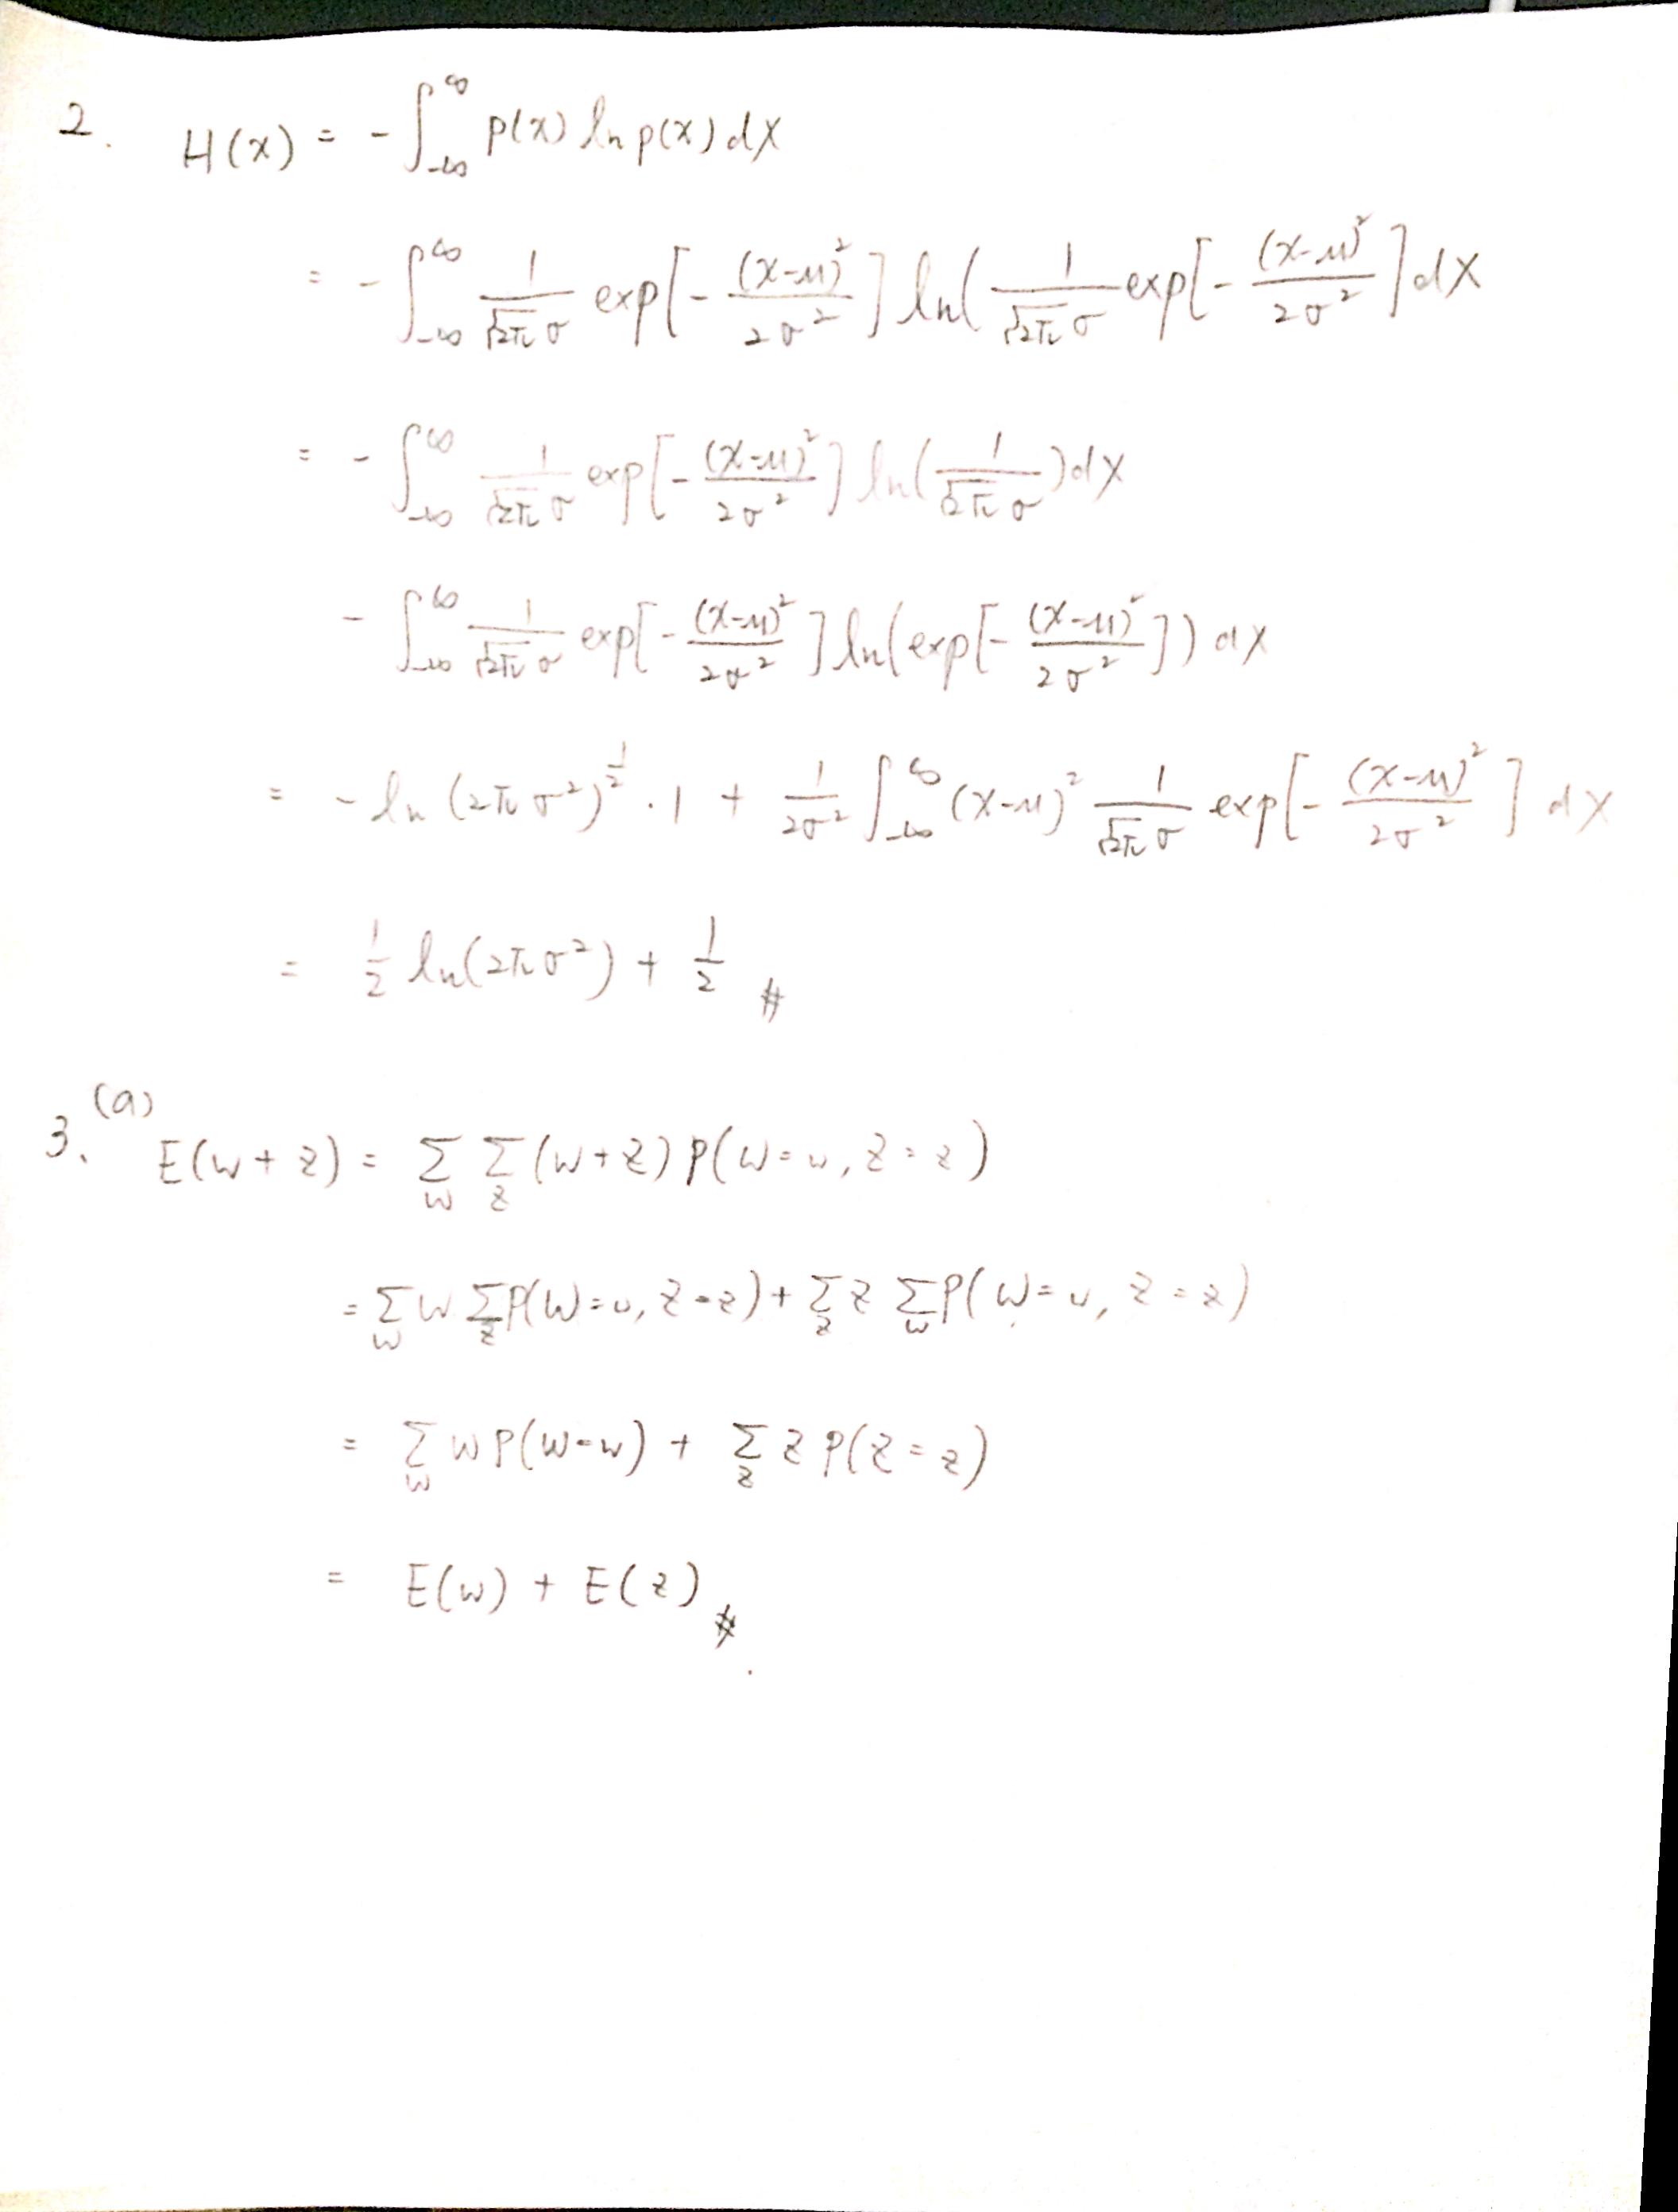 2. H(x) = - ∫_{-∞}^{∞} p(x) ln p(x) dx
= - ∫_{-∞}^{∞} 1/(√2π σ) exp[- (x-μ)²/2σ²] ln( 1/(√2π σ) exp[- (x-μ)²/2σ² ] dx
= - ∫_{-∞}^{∞} 1/(√2π σ) exp[- (x-μ)²/2σ²] ln( 1/(√2π σ) ) dx
- ∫_{-∞}^{∞} 1/(√2π σ) exp[- (x-μ)²/2σ² ] ln( exp[- (x-μ)²/2σ² ]) dx
= - ln (2π σ²)^{1/2} · 1 + 1/2σ² ∫_{-∞}^{∞} (x-μ)² 1/(√2π σ) exp[- (x-μ)²/2σ² ] dx
= 1/2 ln(2π σ²) + 1/2 #
3. (a)
E(w+z) = Σ_w Σ_z (w+z) P(W=w, Z=z)
= Σ_w w Σ_z P(W=w, Z=z) + Σ_z z Σ_w P(W=w, Z=z)
= Σ_w w P(W=w) + Σ_z z P(Z=z)
= E(w) + E(z) #